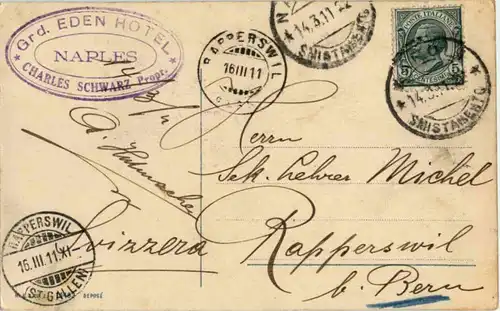 Grd. EDEN HOTEL
NAPLES
CHARLES SCHWARZ Propr.
RAPPERSWIL
16 III 11
14.3.11 22
SMISTAMENTO
POSTE ITALIANE
5 CENTESIMI 5
14.3.11
SMISTAMENTO
Herrn
Sek. Lehrer Michel
Rapperswil
b. Bern
Svizzera
RAPPERSWIL
16. III. 11. XI
(ST. GALLEN)